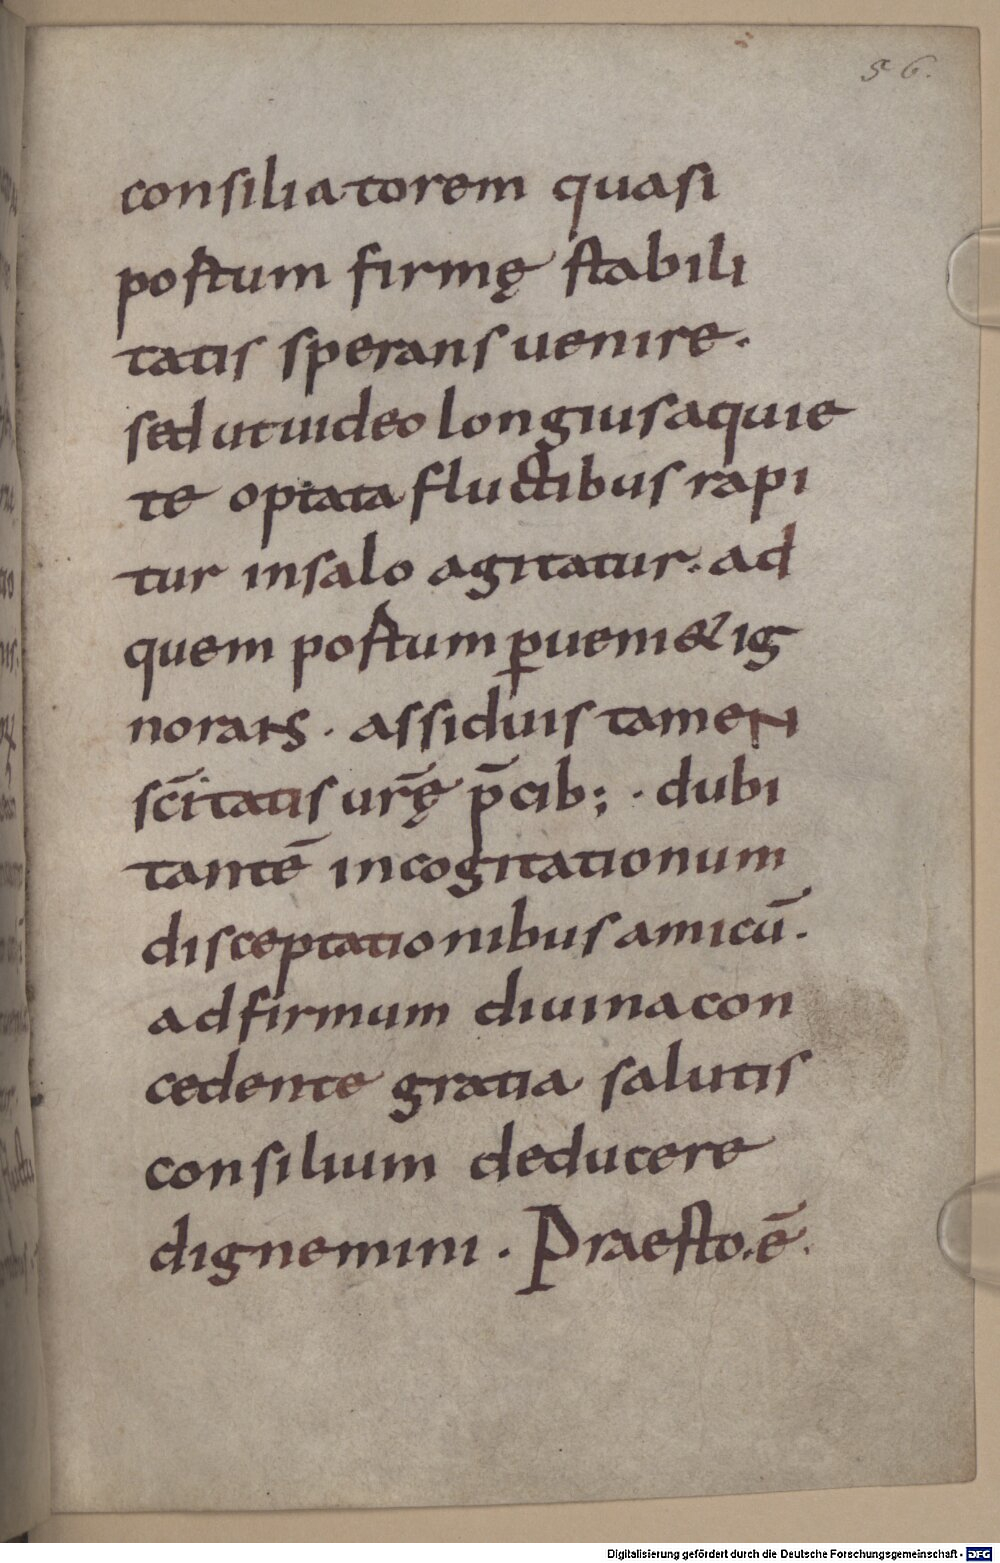 56.
consiliatorem quasi
postum firmę stabili
tatis sperans uenire.
sed ut uideo longius a quie
te optata fluctibus rapi
tur in salo agitatur. ad
quem postum ꝑueni& ig
norans. assiduis tamen
sc̄itatis ur̄ę p̄cib; . dubi
tantē in cogitationum
disceptationibus amicū.
ad firmum diuina con
cedente gratia salutis
consilium deducere
dignemini. Praesto. ē.
Digitalisierung gefördert durch die Deutsche Forschungsgemeinschaft - DFG